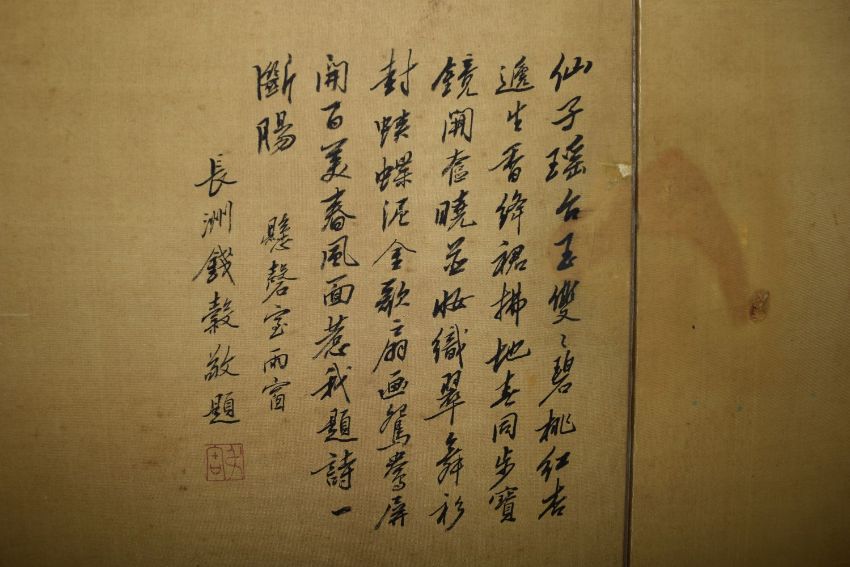 仙子瑶台玉雙〻碧桃紅杏
遞生香絳裙拂地春同步寶
鏡開奩曉並妝織翠舞衫
封蛺蝶泥金歌扇画鴛鴦屏
開百美春風面惹我題詩一
斷腸
懸磬室雨窗
長洲錢榖敬題